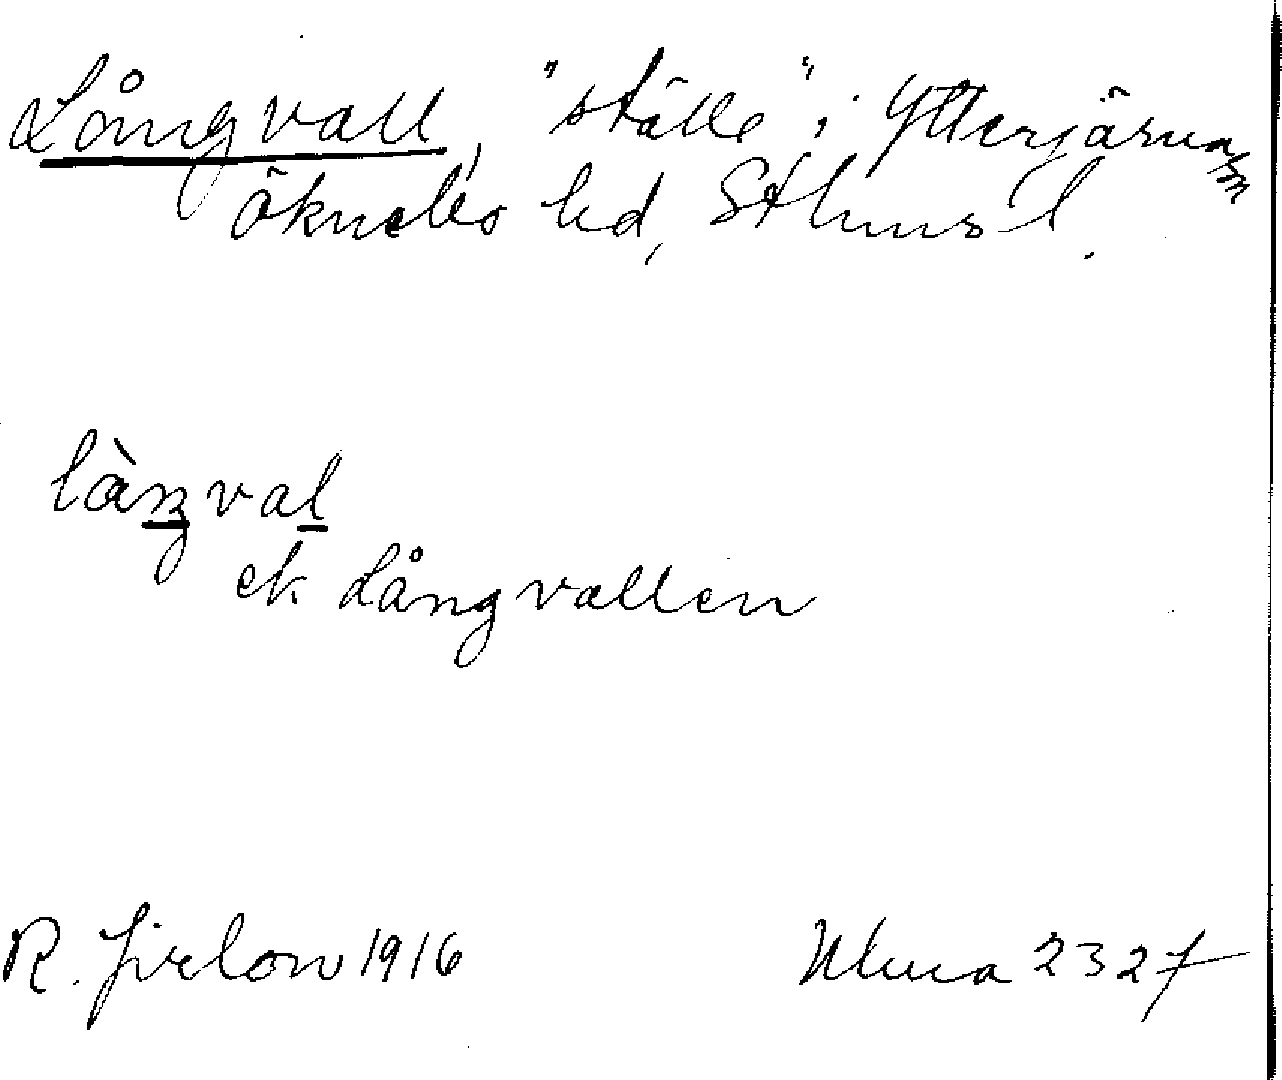 Långvall, "ställe" i Ytterjärna sn
Öknebo hd, Sthms l.
làŋval
ek Långvallen
R. Jirlow 1916
Uluma 2327